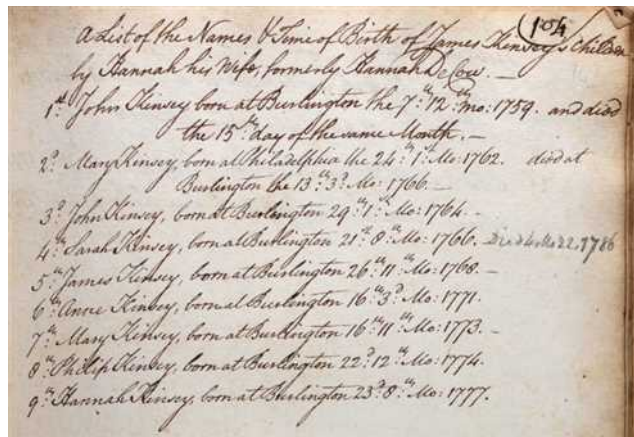 (104
A List of the Names & Time of Birth of James Kinsey's Children
by Hannah his Wife, formerly Hannah DeCow. —
1st. John Kinsey born at Burlington the 7th. 12th. mo: 1759. and died
the 15th day of the same Month. —
2d. Mary Kinsey, born at Philadelphia the 24th. 1st. Mo: 1762. died at
Burlington the 13th. 3d. Mo: 1766. —
3d. John Kinsey, born at Burlington 29th. 1st. Mo: 1764. —
4th. Sarah Kinsey, born at Burlington 21st. 8th. Mo: 1766. Died 4. Mo 22. 1786
5th. James Kinsey, born at Burlington 26th. 11th. Mo: 1768. —
6th. Anne Kinsey, born at Burlington 16th. 3d. Mo: 1771.
7th. Mary Kinsey, born at Burlington 16th. 11th. Mo: 1773. —
8th. Philip Kinsey, born at Burlington 22d. 12th. Mo: 1774.
9th. Hannah Kinsey, born at Burlington 23d. 8th. Mo: 1777.